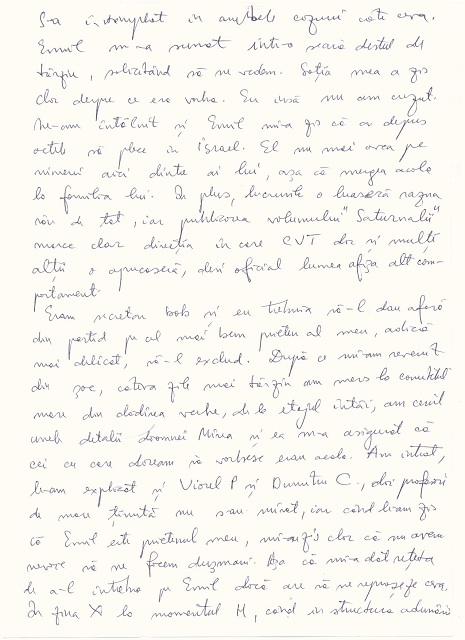 S-a întâmplat în ambele cazuri câte ceva.
Emil m-a sunat într-o seară destul de
târziu, solicitând să ne vedem. Soția mea a zis
clar despre ce era vorba. Eu însă nu am crezut.
Ne-am întâlnit și Emil mi-a zis că a depus
actele să plece în Israel. El nu mai avea pe
nimeni aici dintre ai lui, așa că mergea acolo
la familia lui. În plus, lucrurile o luaseră razna
rău de tot, iar publicarea volumului "Saturnalii"
marca clar direcția în care CVT dar și mulți
alții o apucaseră, deși oficial lumea afișa alt com-
portament.
Eram secretar bob și eu trebuia să-l dau afară
din partid pe cel mai bun prieten al meu, adică
mai delicat, să-l exclud. După ce mi-am revenit
din șoc, câteva zile mai târziu am mers la comitetul
mare din clădirea veche, de la etajul întâi, am cerut
unele detalii doamnei Mirea și ea m-a asigurat că
cei cu care doream să vorbesc erau acolo. Am intrat,
le-am explicat și Viorel P și Dumitru C., doi profesori
de mare ținută nu s-au mirat, iar când le-am zis
că Emil este prietenul meu, mi-au zis clar că nu avem
nevoie să ne facem dușmani. Așa că mi-a dat rețeta
de a-l întreba pe Emil dacă are să ne reproșeze ceva.
În ziua X la momentul M, când în structura adunării